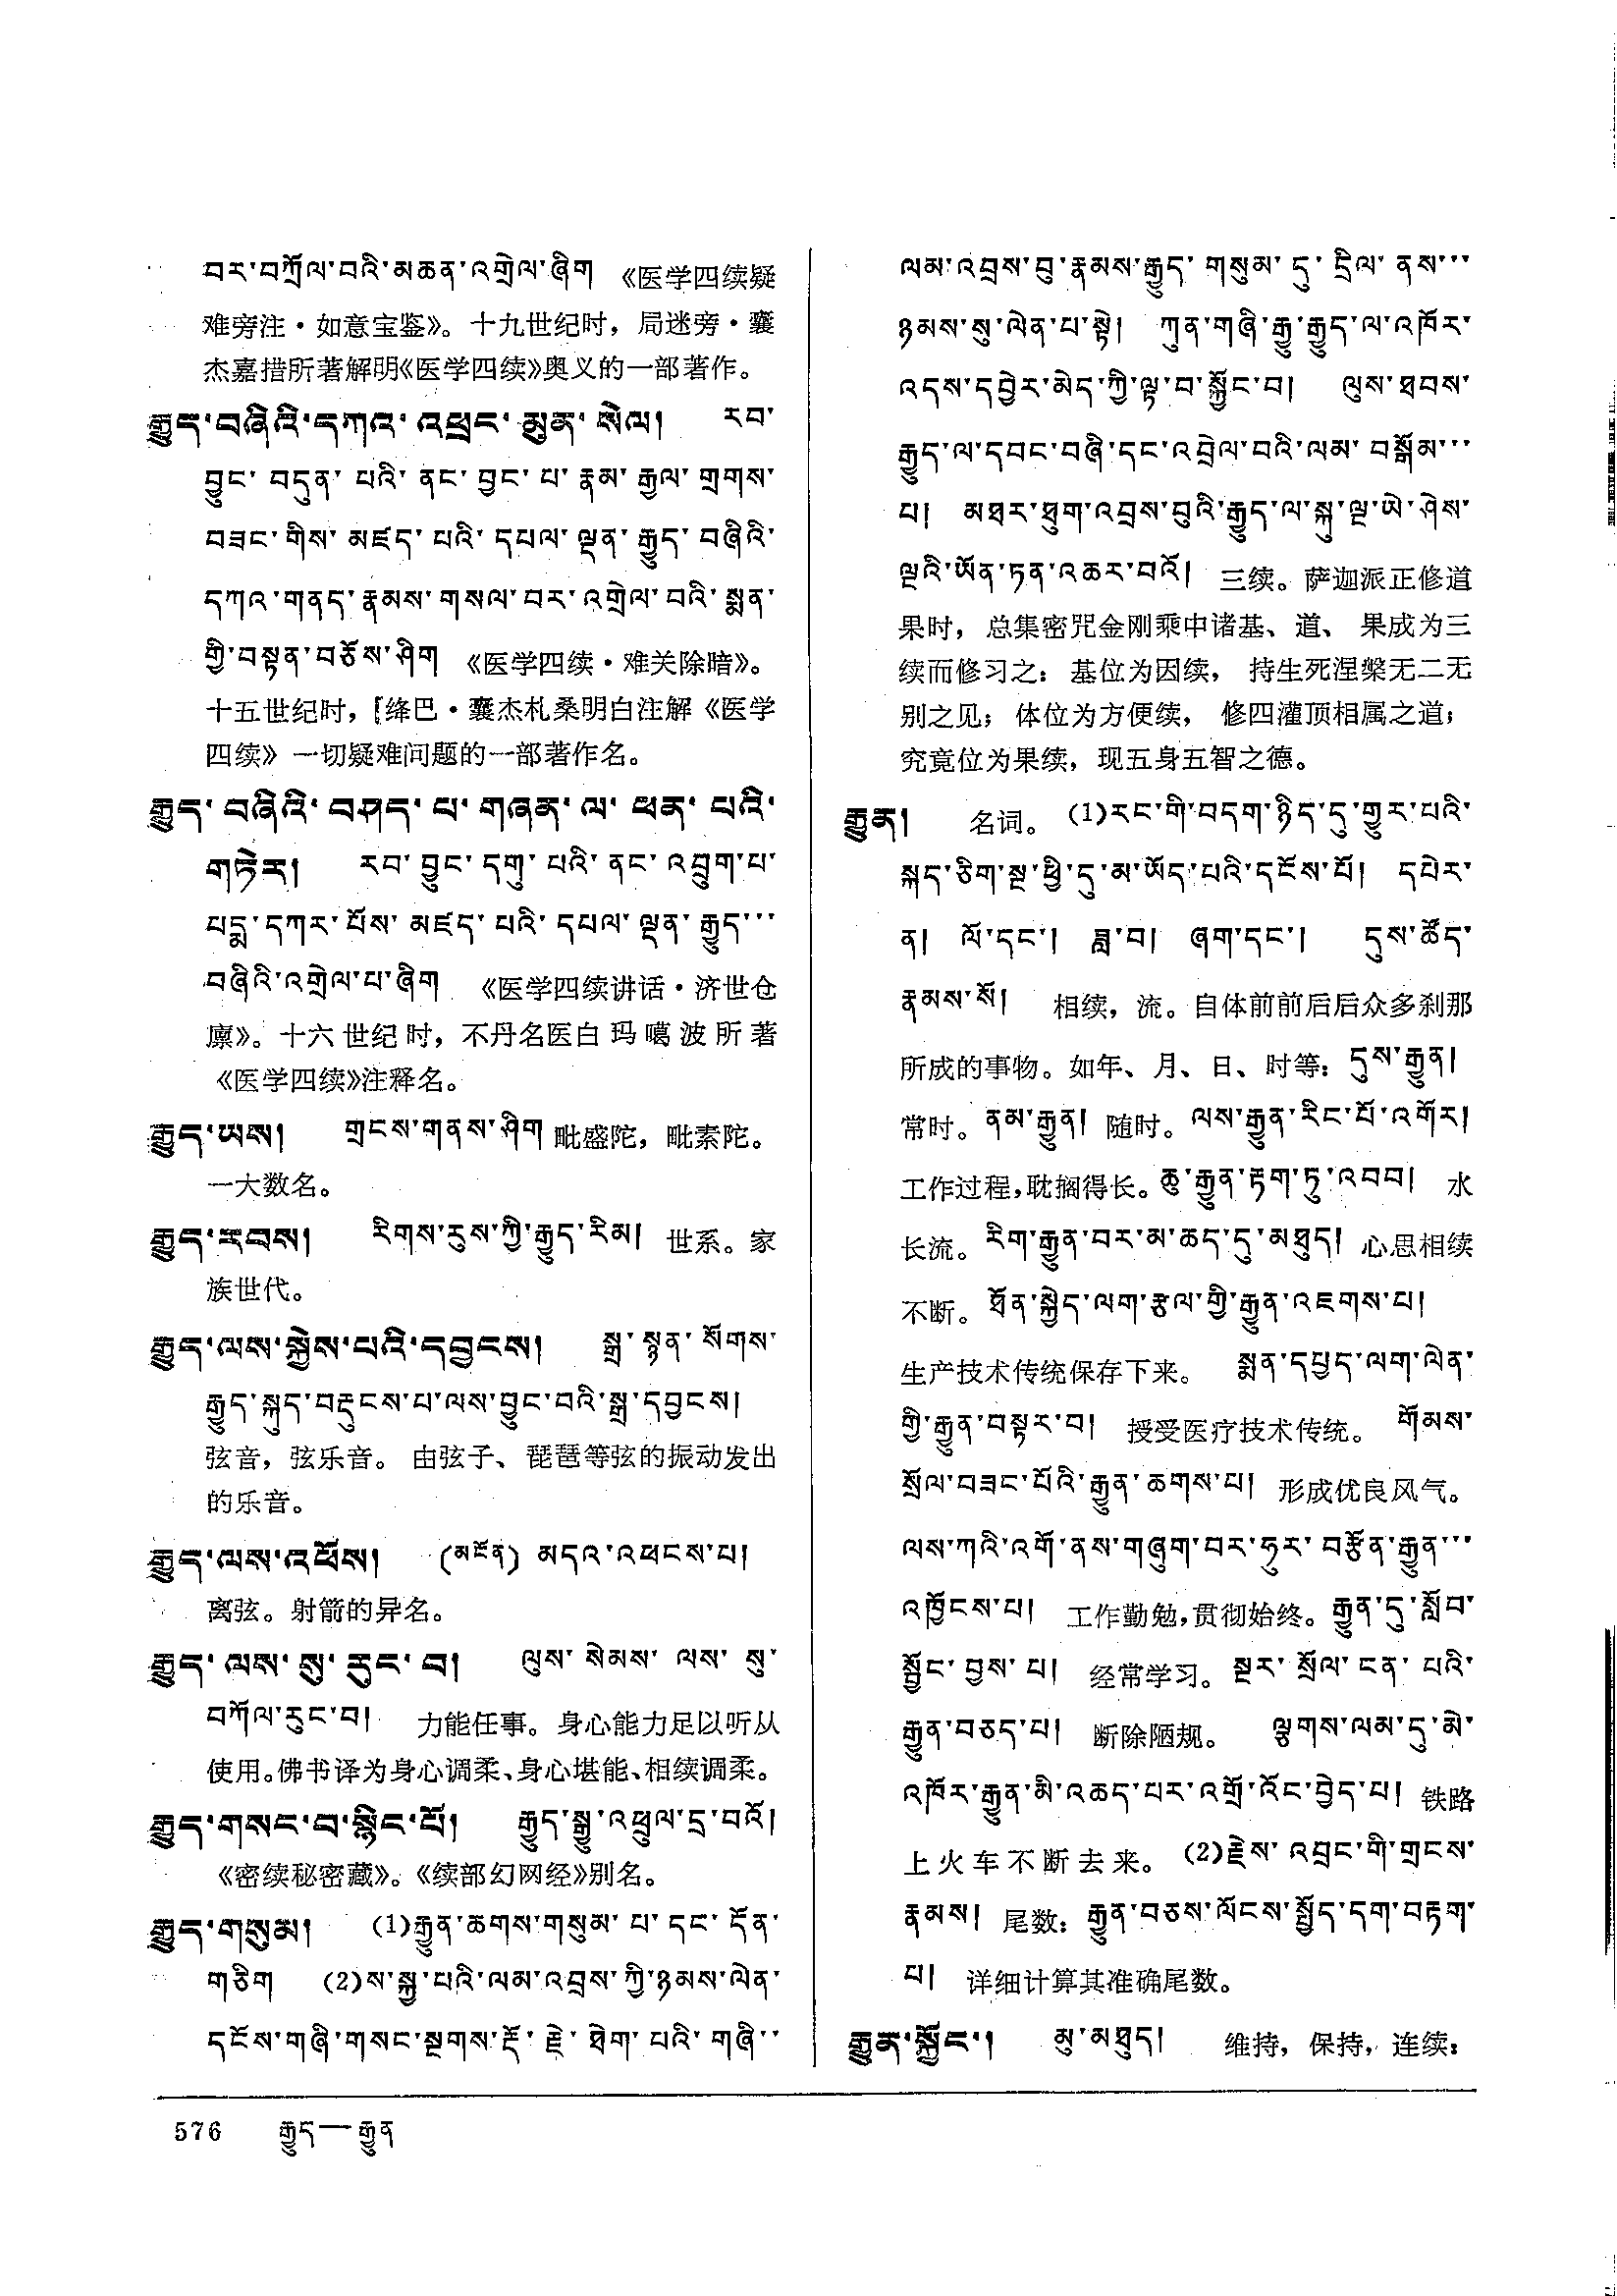 བར་བཀྲོལ་བའི་མཆན་འགྲེལ་ཞིག 《医学四续疑
难旁注·如意宝鉴》。十九世纪时，局迷旁·囊
杰嘉措所著解明《医学四续》奥义的一部著作。
རྒྱུད་བཞིའི་དཀའ་འཕྲང་མུན་སེལ། རབ་
བྱུང་བདུན་པའི་ནང་བྱང་པ་རྣམ་རྒྱལ་གྲགས་
བཟང་གིས་མཛད་པའི་དཔལ་ལྡན་རྒྱུད་བཞིའི་
དཀའ་གནད་རྣམས་གསལ་བར་འགྲེལ་བའི་སྨན་
གྱི་བསྟན་བཅོས་ཤིག 《医学四续·难关除暗》。
十五世纪时，绛巴·囊杰札桑明白注解《医学
四续》一切疑难问题的一部著作名。
རྒྱུད་བཞིའི་བཤད་པ་གཞན་ལ་ཕན་པའི་
གཏེར། རབ་བྱུང་དགུ་པའི་ནང་འབྲུག་པ་
པདྨ་དཀར་པོས་མཛད་པའི་དཔལ་ལྡན་རྒྱུད་···
བཞིའི་འགྲེལ་པ་ཞིག 《医学四续讲话·济世仓
廪》。十六世纪时，不丹名医白玛噶波所著
《医学四续》注释名。
རྒྱུད་ཡས། གྲངས་གནས་ཤིག 毗盛陀，毗素陀。
一大数名。
རྒྱུད་རབས། རིགས་རུས་ཀྱི་རྒྱུད་རིམ། 世系。家
族世代。
རྒྱུད་ལས་སྐྱེས་པའི་དབྱངས། སྒྲ་སྙན་སོགས་
རྒྱུད་སྐུད་བརྡུངས་པ་ལས་བྱུང་བའི་སྒྲ་དབྱངས།
弦音，弦乐音。由弦子、琵琶等弦的振动发出
的乐音。
རྒྱུད་ལས་འཕོས། (མངོན) མདའ་འཕངས་པ།
离弦。射箭的异名。
རྒྱུད་ལས་སུ་རུང་བ། ལུས་སེམས་ལས་སུ་
བཀོལ་རུང་བ། 力能任事。身心能力足以听从
使用。佛书译为身心调柔、身心堪能、相续调柔。
རྒྱུད་གསང་བ་སྙིང་པོ། རྒྱུད་སྒྱུ་འཕྲུལ་དྲ་བའོ།
《密续秘密藏》。《续部幻网经》别名。
རྒྱུད་གསུམ། (1)རྒྱུན་ཆགས་གསུམ་པ་དང་དོན་
གཅིག (2)ས་སྐྱ་པའི་ལམ་འབྲས་ཀྱི་ཉམས་ལེན་
དངོས་གཞི་གསང་སྔགས་རྡོ་རྗེ་ཐེག་པའི་གཞི་··
ལམ་འབྲས་བུ་རྣམས་རྒྱུད་གསུམ་དུ་དྲིལ་ནས···
ཉམས་སུ་ལེན་པ་སྟེ། ཀུན་གཞི་རྒྱུ་རྒྱུད་ལ་འཁོར་
འདས་དབྱེར་མེད་ཀྱི་ལྟ་བ་སྐྱོང་བ། ལུས་ཐབས་
རྒྱུད་ལ་དབང་བཞི་དང་འབྲེལ་བའི་ལམ་བསྒོམ་···
པ། མཐར་ཐུག་འབྲས་བུའི་རྒྱུད་ལ་སྐུ་ལྔ་ཡེ་ཤེས་
ལྔའི་ཡོན་ཏན་འཆར་བའོ། 三续。萨迦派正修道
果时，总集密咒金刚乘中诸基、道、果成为三
续而修习之：基位为因续，持生死涅槃无二无
别之见；体位为方便续，修四灌顶相属之道；
究竟位为果续，现五身五智之德。
རྒྱུན། 名词。(1)རང་གི་བདག་ཉིད་དུ་གྱུར་པའི་
སྐད་ཅིག་སྔ་ཕྱི་དུ་མ་ཡོད་པའི་དངོས་པོ། དཔེར་
ན། ལོ་དང་། ཟླ་བ། ཞག་དང་། དུས་ཚོད་
རྣམས་སོ། 相续，流。自体前前后后众多刹那
所成的事物。如年、月、日、时等：དུས་རྒྱུན།
常时。ནམ་རྒྱུན། 随时。ལས་རྒྱུན་རིང་པོ་འགོར།
工作过程，耽搁得长。ཆུ་རྒྱུན་རྟག་ཏུ་འབབ། 水
长流。རིག་རྒྱུན་བར་མ་ཆད་དུ་མཐུད། 心思相续
不断。ཐོན་སྐྱེད་ལག་རྩལ་གྱི་རྒྱུན་འཇགས་པ།
生产技术传统保存下来。 སྨན་དཔྱད་ལག་ལེན་
གྱི་རྒྱུན་བསྟར་བ། 授受医疗技术传统。 གོམས་
སྲོལ་བཟང་པོའི་རྒྱུན་ཆགས་པ། 形成优良风气。
ལས་ཀའི་འགོ་ནས་གཞུག་བར་ཧུར་བརྩོན་རྒྱུན་···
འཁྱོངས་པ། 工作勤勉，贯彻始终。རྒྱུན་དུ་སློབ་
སྦྱོང་བྱས་པ། 经常学习。སྔར་སྲོལ་ངན་པའི་
རྒྱུན་བཅད་པ། 断除陋规。 ལྕགས་ལམ་དུ་མེ་
འཁོར་རྒྱུན་མི་འཆད་པར་འགྲོ་འོང་བྱེད་པ། 铁路
上火车不断去来。(2)རྗེས་འབྲང་གི་གྲངས་
རྣམས། 尾数：རྒྱུན་བཅས་ལོངས་སྤྱོད་དག་བརྟག་
པ། 详细计算其准确尾数。
རྒྱུན་སྐྱོང་། མུ་མཐུད། 维持，保持，连续：
576 རྒྱུད—རྒྱུན